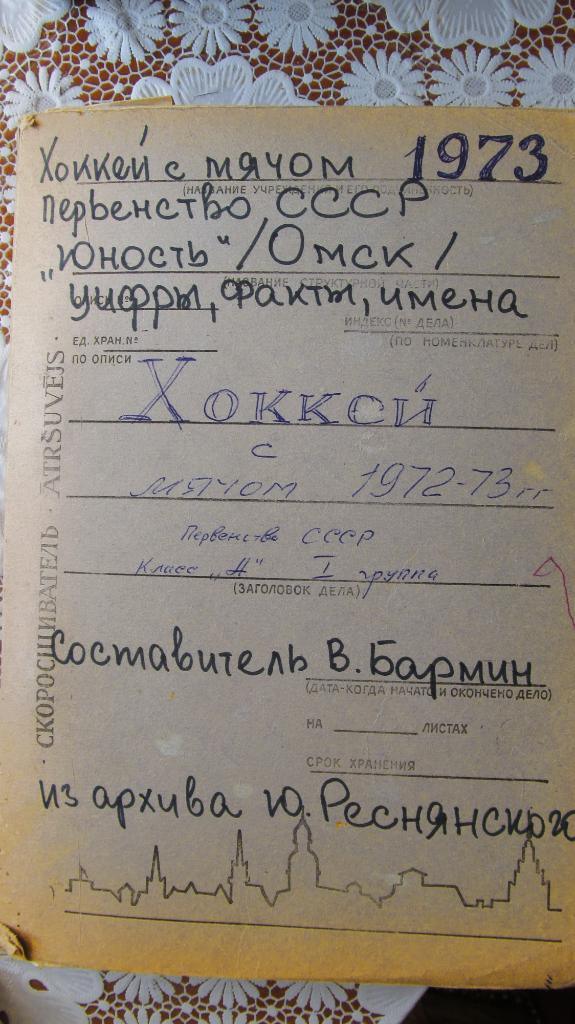 Хоккей с мячом 1973
(НАЗВАНИЕ УЧРЕЖДЕНИЯ И ЕГО ПОДЧИНЕННОСТЬ)
первенство СССР
"Юность" /Омск/
(НАЗВАНИЕ СТРУКТУРНОЙ ЧАСТИ)
ОПИСЬ №
цифры, факты, имена
ИНДЕКС (№ ДЕЛА)
ЕД. ХРАН. №
(ПО НОМЕНКЛАТУРЕ ДЕЛ)
ПО ОПИСИ
Хоккей
с
мячом 1972-73 гг
Первенство СССР
Класс "А" I группа
(ЗАГОЛОВОК ДЕЛА)
СКОРОСШИВАТЕЛЬ · ĀTRŠUVĒJS ·
Составитель В. Бармин
(ДАТА-КОГДА НАЧАТО И ОКОНЧЕНО ДЕЛО)
НА ЛИСТАХ
СРОК ХРАНЕНИЯ
из архива Ю. Реснянского